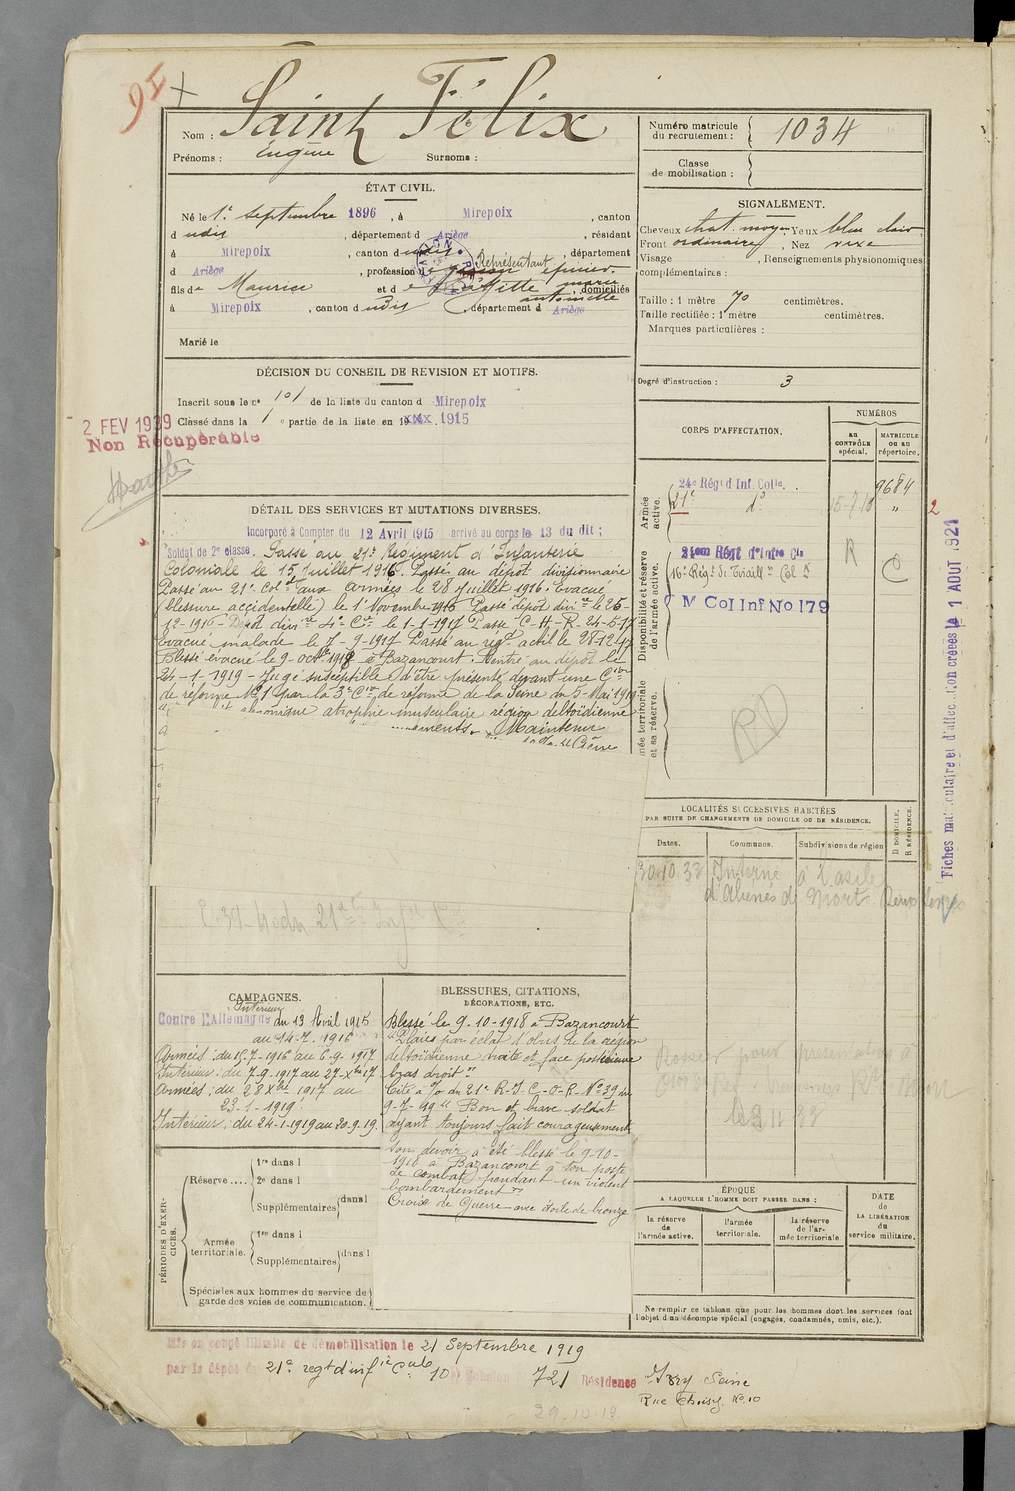 91
Saint Félix
Nom :
Prénoms : Eugène Surnoms :
Numéro matricule du recrutement : 1034
Classe de mobilisation :
ÉTAT CIVIL.
Né le 1er septembre 1896, à Mirepoix, canton
dudit, département d Ariège, résidant
à Mirepoix, canton dudit, département
d Ariège, profession d Représentant épicier.
fils de Maurice et de Laffitte marie antoinette, domiciliés
à Mirepoix, canton dudit, département d Ariège
Marié le
SIGNALEMENT.
Cheveux chat. moyen Yeux bleu clair
Front ordinaire, Nez vexe
Visage , Renseignements physionomiques
complémentaires :
Taille : 1 mètre 70 centimètres.
Taille rectifiée : 1 mètre centimètres.
Marques particulières :
Degré d'instruction : 3
DÉCISION DU CONSEIL DE REVISION ET MOTIFS.
Inscrit sous le n° 101 de la liste du canton d Mirepoix
Classé dans la 1e partie de la liste en 19 1915
2 FEV 1939
Non Récupérable
DÉTAIL DES SERVICES ET MUTATIONS DIVERSES.
Incorporé à Compter du 12 Avril 1915 arrivé au corps le 13 du dit ;
Soldat de 2e classe. Passé au 21e Régiment d'Infanterie
Coloniale le 15 Juillet 1916. Passé au dépôt divisionnaire
Passé au 21e Col al aux armées le 28 Juillet 1916. Évacué
(blessure accidentelle) le 1er Novembre 1916 Passé dépôt div re le 26-
12-1916 - Dépôt div re 4e Cie le 1-1-1917 Passé C-H-R- 24-5-17
Évacué malade le 7-9-1917 Passé au rég t actif le 28-12-17
Blessé évacué le 9-octbre 1918 à Bazancourt. Rentré au dépôt le
24-1-1919 - Jugé susceptible d'être présenté devant une Cion
de réforme N°1 par la 3e Cion de réforme de la Seine du 5-Mai 1919
atrophie musculaire région deltoïdienne
Maintenu
CORPS D'AFFECTATION.
NUMÉROS
AU CONTRÔLE spécial.
MATRICULE OU AU répertoire.
Armée active.
24e Régt d'Inf. Colle. 9684
21e do 15-7-16 "
2
Disponibilité et réserve de l'armée active.
21em Régt d'Infie Cle R C
16e Rég t de Tiraill rs Col x
IV Col Inf No 179
Armée territoriale et sa réserve.
RD
Fiches matriculaire et d'affectation créées le 1 AOUT 1921
LOCALITÉS SUCCESSIVES HABITÉES
PAR SUITE DE CHANGEMENTS DE DOMICILE OU DE RÉSIDENCE.
Dates. Communes. Subdivisions de région D DOMICILE. R RÉSIDENCE.
30.10.38 Interné à l'asile
d'Aliénés de Niort Deux Sèvres
CAMPAGNES.
Intérieur
Contre l'Allemagne du 13 Avril 1915
au 14-7-1916
Armées : du 15-7-1916 au 6-9-1917
Intérieur : du 7-9-1917 au 27-Xbre 17
Armées : du 28 Xbre 1917 au
23-1-1919
Intérieur : du 24-1-1919 au 30-9-19.
BLESSURES, CITATIONS,
DÉCORATIONS, ETC.
Blessé le 9-10-1918 à Bazancourt
"Plaies par éclat d'obus de la région
deltoïdienne droite et face postérieure
bras droit"
Cité à l'o du 21e R-I-C-O-R- N° 39 du
9-7-19 "Bon et brave soldat
ayant toujours fait courageusement
son devoir, a été blessé le 9-10-
1918 à Bazancourt à son poste
de combat pendant un violent
bombardement"
Croix de Guerre avec étoile de bronze
PÉRIODES D'EXERCICES.
Réserve....
1re dans l
2e dans l
Supplémentaires dans l
Armée territoriale.
1re dans l
Supplémentaires dans l
Spéciales aux hommes du service de
garde des voies de communication.
ÉPOQUE
A LAQUELLE L'HOMME DOIT PASSER DANS :
la réserve de l'armée active.
l'armée territoriale.
la réserve de l'armée territoriale
DATE de LA LIBÉRATION du service militaire.
Ne remplir ce tableau que pour les hommes dont les services font
l'objet d'un décompte spécial (engagés, condamnés, omis, etc.).
Mis en congé illimité de démobilisation le 21 Septembre 1919
par le dépôt du 21e regt d'inf ie C ale 10 721 Résidence Ivry Seine
Rue Choisy. No. 10
29-10-19